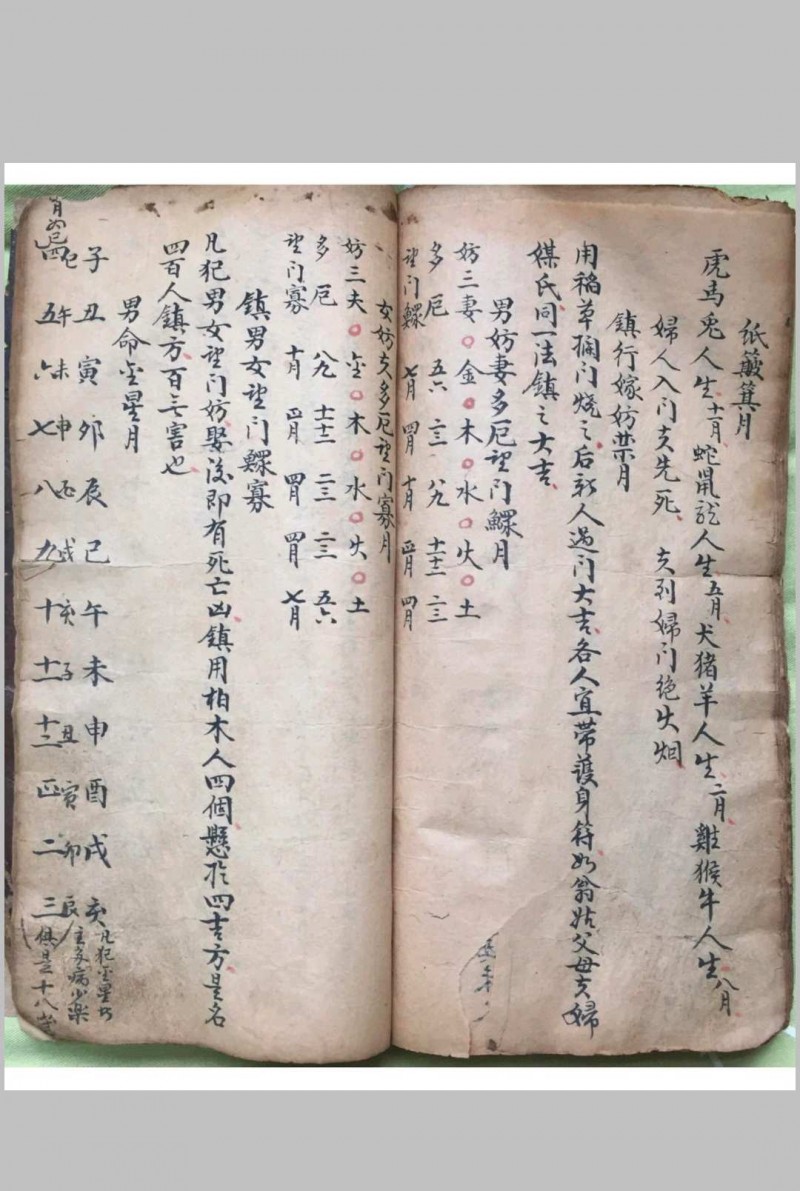 纸簸箕月
虎马兔人生十一月 蛇鼠龙人生五月 犬猪羊人生二月 雞猴牛人生八月
婦人入门夫先死 夫到婦门绝火烟
镇行嫁妨禁月
用稻草捆门烧之后新人過门大吉各人宜带護身符如翁姑父母夫婦
媒氏同一法镇之大吉
男妨妻多厄望门鳏月
妨三妻 金 木 水 火 土
多厄 五六 二三 八九 十一十二 二三
望门鳏 七月 四月 十月 正月 四月
女妨夫多厄望门寡月
妨三夫 金 木 水 火 土
多厄 八九 十一十二 二三 二三 五六
望门寡 十月 正月 四月 四月 七月
镇男女望门鳏寡
凡犯男女望门妨娶後即有死亡凶镇用柏木人四個懸於四吉方是名
四百人镇方百无害也
男命金星月
子 丑 寅 卯 辰 巳 午 未 申 酉 戌 亥
凡犯金星
主多病少樂
巳 午 未 申 酉 戌 亥 子 丑 寅 卯 辰
四 五 六 七 八 九 十 十一 十二 正 二 三
俱是十八